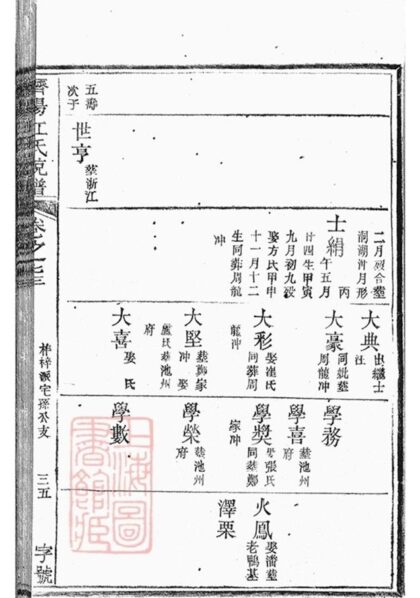 濟陽江氏統譜
卷之一
梓梓派宅孫公支
三五
字號
五海
次子
世亨
葬浙江
二月殁合葬
南湖月形
士絹
丙
午五月
廿四生甲寅
九月初九殁
娶方氏甲申
十一月十二
生同葬周龍
冲
大典
出繼士
杜
大豪
同妣葬
周龍冲
大彩
娶崔氏
同葬周
龍冲
大堅
葬鄭家
冲娶
盧氏葬池州
府
大喜
娶氏
學務
學喜
葬池州
府
學獎
娶張氏
同葬鄭
家冲
學榮
葬池州
府
學數
火鳳
娶潘葬
老鴨基
澤栗
上海圖
書館藏